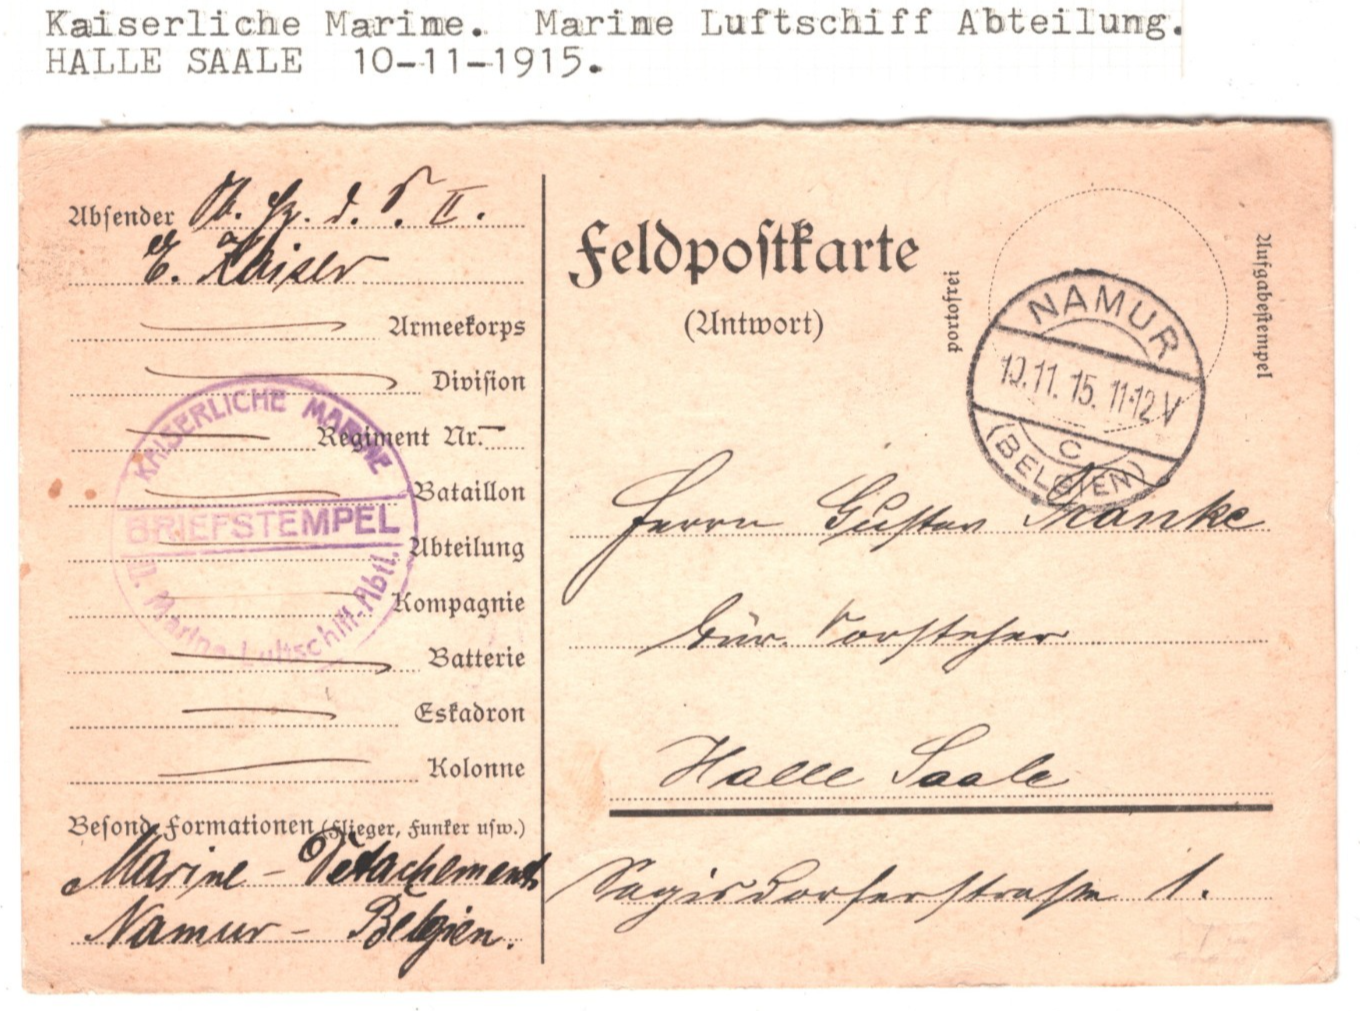 Kaiserliche Marine. Marine Luftschiff Abteilung.
HALLE SAALE 10-11-1915.
Absender Ob. Hz. d. S. II.
E. Kaiser
Armeekorps
Division
Regiment Nr.
Bataillon
Abteilung
Kompagnie
Batterie
Eskadron
Kolonne
Besond. Formationen (Flieger, Funker usw.)
Marine - Detachement
Namur - Belgien.
KAISERLICHE MARINE
BRIEFSTEMPEL
Marine-Luftschiff-Abtl.
Feldpostkarte
(Antwort)
portofrei
Aufgabestempel
NAMUR
10.11.15. 11-12 V
C
(BELGIEN)
Herrn Gustav Manke
Bür. Vorsteher
Halle Saale
Sagisdorferstrasse 1.